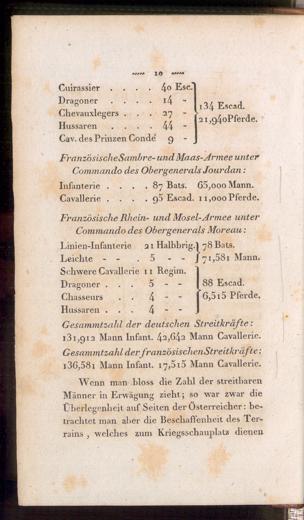 10
Cuirassier . . . . 40 Esc.
Dragoner . . . . 14 -
Chevauxlegers . . . 27 -
Hussaren . . . . 44 -
Cav. des Prinzen Condé 9 -
134 Escad.
21,940 Pferde.
Französische Sambre- und Maas-Armee unter
Commando des Obergenerals Jourdan:
Infanterie . . . . 87 Bats. 65,000 Mann.
Cavallerie . . . . 95 Escad. 11,000 Pferde.
Französische Rhein- und Mosel-Armee unter
Commando des Obergenerals Moreau:
Linien-Infanterie 21 Halbbrig.
Leichte - - . 5 - -
78 Bats.
71,581 Mann.
Schwere Cavallerie 11 Regim.
Dragoner . . . 5 - -
Chasseurs . . 4 - -
Hussaren . . . 4 - -
88 Escad.
6,515 Pferde.
Gesammtzahl der deutschen Streitkräfte:
131,912 Mann Infant. 42,642 Mann Cavallerie.
Gesammtzahl der französischen Streitkräfte:
136,581 Mann Infant. 17,515 Mann Cavallerie.
Wenn man bloss die Zahl der streitbaren
Männer in Erwägung zieht; so war zwar die
Überlegenheit auf Seiten der Österreicher: be-
trachtet man aber die Beschaffenheit des Ter-
rains, welches zum Kriegsschauplatz dienen